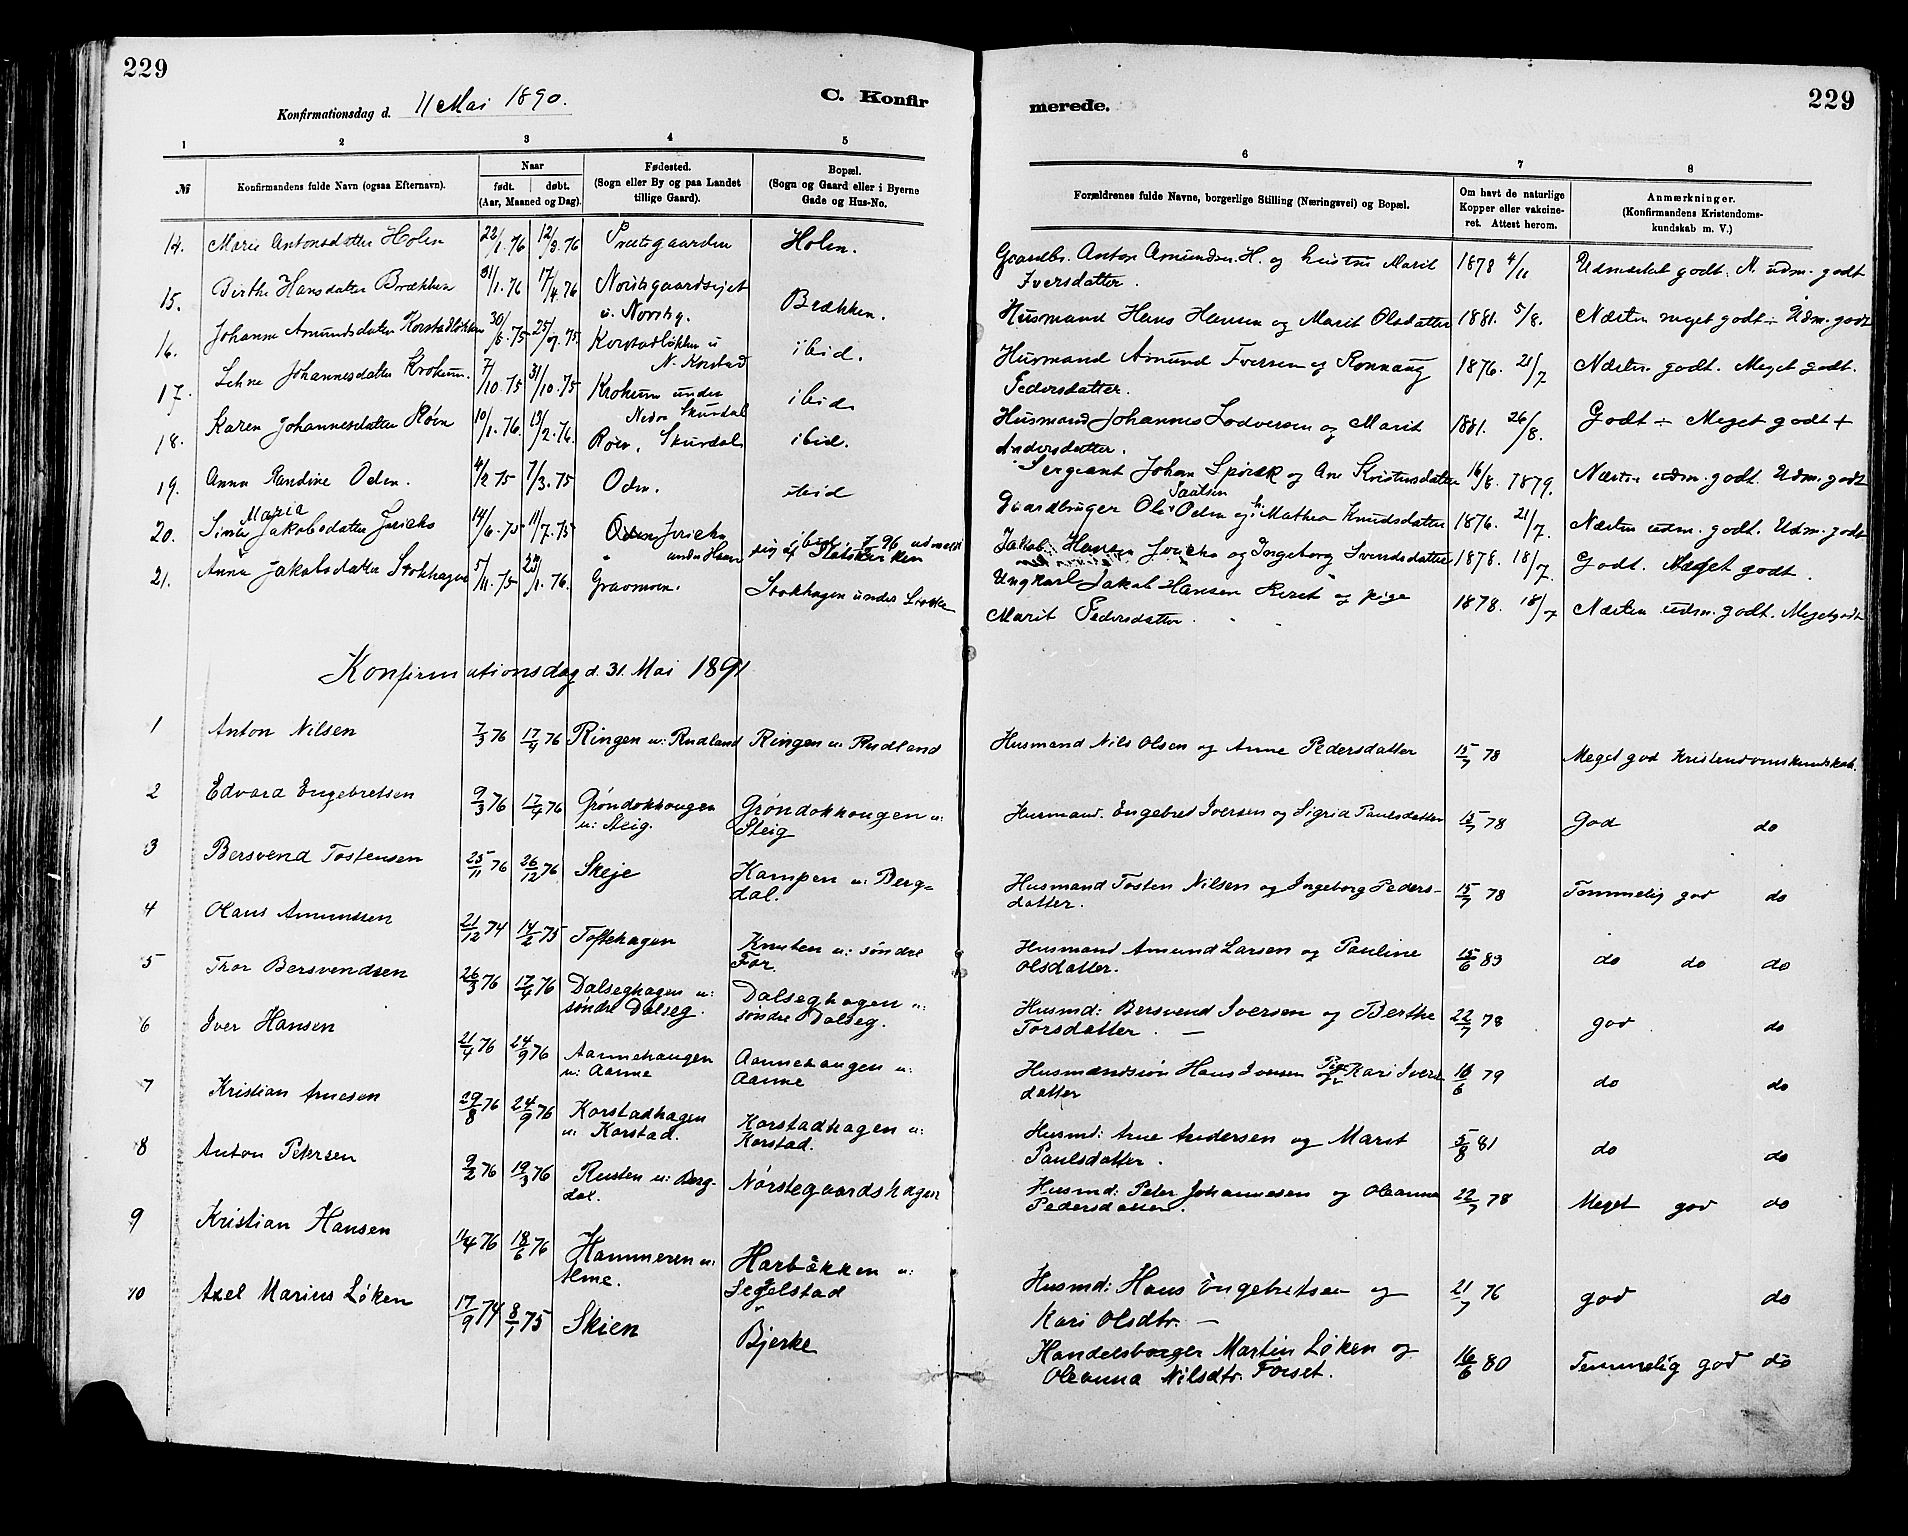 229
Konfirmationsdag d. 11 Mai 1890.
C. Konfir
merede.
229
1 2 3 4 5 6 7 8
№
Konfirmandens fulde Navn (ogsaa Efternavn).
Naar
født. døbt.
(Aar, Maaned og Dag).
Fødested.
(Sogn eller By og paa Landet
tillige Gaard).
Bopæl.
(Sogn og Gaard eller i Byerne
Gade og Hus-No.
Forældrenes fulde Navne, borgerlige Stilling (Næringsvei) og Bopæl.
Om havt de naturlige
Kopper eller vakcine-
ret. Attest herom.
Anmærkninger.
(Konfirmandens Kristendoms-
kundskab m. V.)
14. Marie Antonsdatter Holen 22/1.76 12/3.76 Præstgaarden Holen. Gaardbr. Anton Amundsen H. og hustru Marit
Iversdatter. 1878 4/11 Udmærket godt. N. udm. godt
15. Birthe Hansdatter Brækken 31/1.76 17/4.76 Nordgaardsejet
u. Nordby. Brækken. Husmand Hans Hansen og Marit Olsdatter 1881. 5/8. Næsten meget godt ÷ Udm. godt
16. Johanne Amundsdatter Korstadløkken 30/6.75 25/7.75. Korstadløkken u
N. Korstad ibid. Husmand Amund Iversen og Ronnaug
Pedersdatter. 1876. 21/7 Næsten godt. Meget godt.
17. Lehne Johannesdatter Krokum. 7/10.75 31/10.75 Krokum under
Nedre Skurdal ibid. Husmand Johannes Lodversen og Marit
Andersdatter. 1881. 26/8. Godt ÷ Meget godt +
18. Karen Johannesdatter Røen 10/1.76. 13/2.76. Røen, Skurdal ibid. Sergeant Johan Spørck og Ane Kristensdatter 16/8. 1879. Næsten udm. godt. Udm. godt
19. Anna Randine Oden. 4/2 75 7/3.75 Oden. ibid Gaardbruger Ole Paulsen Oden og h. Mathea Knudsdatter 1876. 21/7. Næsten udm. godt. Udm. godt
20. Sina Maria Jakobsdatter Jericho 14/6.75 11/7.75 Jericho
under Haave ibid. 7/96 udmeldt
sig af Statskirken Jakob Hansen Jericho og Ingeborg Svendsdatter 1878. 18/7. Godt. Meget godt.
21. Anna Jakobsdatter Stokhagen 5/11.75 23/1.76. Graamoen. Stokhagen under Stokke Ungkarl Jakob Hansen Reset og pige
Marit Pedersdatter. 1878. 18/7 Næsten udm. godt. Meget godt
Konfirmationsdag d. 31. Mai 1891
1 Anton Nilsen 7/3 76 17/4 76 Ringen u: Rudland Ringen u: Rudland Husmand Nils Olsen og Anne Pedersdatter 15/7 78 Meget god Kristendomskundskab.
2 Edvard Engebretsen 9/3 76 17/4 76 Grøndokhaugen
u: Steig. Grøndokhaugen u:
Steig Husmand. Engebret Iversen og Sigrid Paulsdatter 15/7 78 God do
3 Bersvend Tostensen 25/11 76 26/12 76 Skeje Kampen u: Berg=
dal. Husmand Tosten Nilsen og Ingeborg Peders-
datter. 15/7 78 Temmelig god do
4 Olaus Amundsen 21/12 74 14/2 75 Toftehagen Knuten u: søndre
For. Husmand Amund Larsen og Pauline
Olsdatter. 15/6 83 do do do
5 Thor Bersvendsen 26/3 76 17/4 76 Dalseghagen u:
søndre Dalseg. Dalseghagen u:
søndre Dalseg. Husmd: Bersvend Iversen og Berthe
Torsdatter. — 22/7 78 god do
6 Iver Hansen 21/4 76 24/9 76 Aannehaugen
u: Aanne Aannehaugen u:
Aanne Husmandssøn Hans Iversen og Pige Kari Ivers
datter 16/6 79 do do
7 Kristian Arnesen 29/8 76 24/9 76 Korstadhagen
u: Korstad. Korstadhagen u:
Korstad. Husmd: Arne Andersen og Marit
Paulsdatter. 5/8 81 do do
8 Anton Petersen 9/2 76 19/3 76 Rusten u: Berg-
dal. Nørstegaardshagen Husmd: Peter Johannesen og Oleanna
Pedersdatter. 22/7 78 Meget god do
9 Kristian Hansen 1/4 76 18/6 76 Hammeren u:
Alme. Harbakken u:
Segelstad Husmd: Hans Engebretsen og
Kari Olsdtr. — 21/7 76 god do
10 Axel Marius Løken 17/9 74 8/1 75 Skien Bjerke Handelsborger Martin Løken og
Oleanna Nilsdtr. Forset. 16/6 80 Temmelig god do